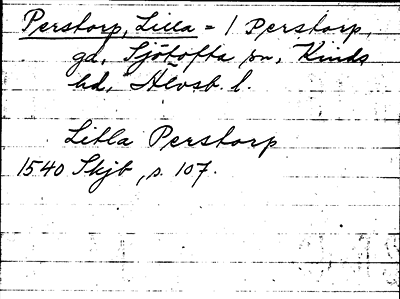 Perstorp, Lilla = 1 Perstorp,
gd, Sjötofta sn, Kinds
hd, Älvsb. l.
Litla Perstorp
1540 Skjb, s. 107.